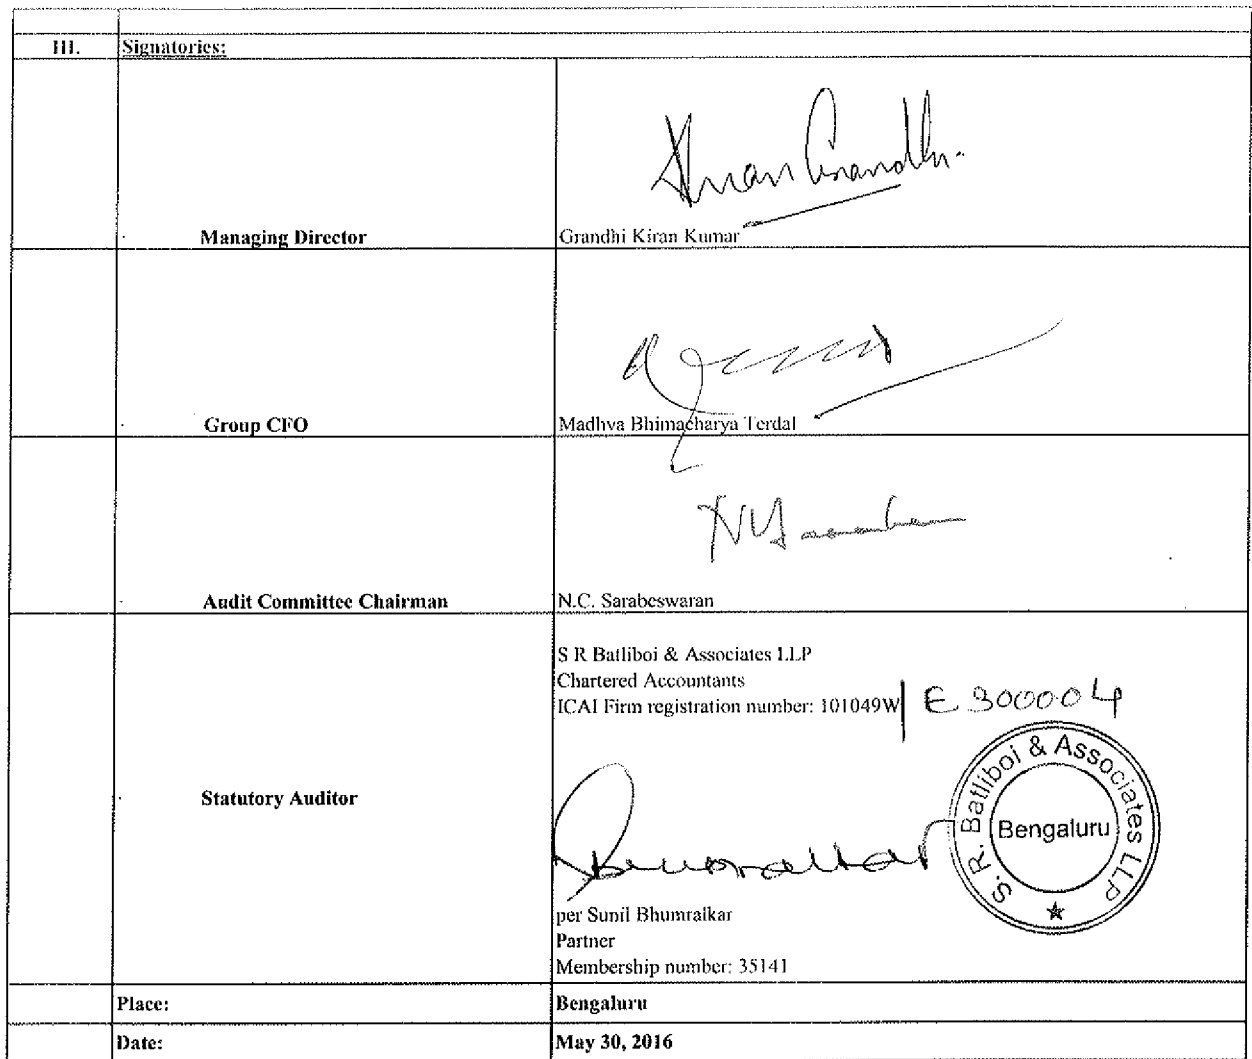 III. Signatories:
Kiran Grandhi
Managing Director Grandhi Kiran Kumar
Group CFO Madhva Bhimacharya Terdal
Audit Committee Chairman N.C. Sarabeswaran
S R Batliboi & Associates LLP
Chartered Accountants
ICAI Firm registration number: 101049W| E300004
S. R. Batliboi & Associates LLP
Bengaluru
Statutory Auditor
per Sunil Bhumralkar
Partner
Membership number: 35141
Place: Bengaluru
Date: May 30, 2016